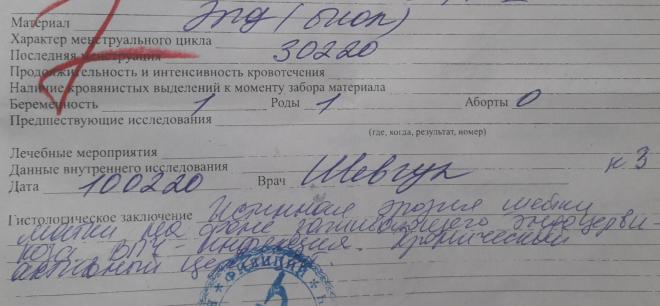 Материал Эпд (биоп)
Характер менструального цикла
Последняя менструация 30220
Продолжительность и интенсивность кровотечения
Наличие кровянистых выделений к моменту забора материала
Беременность 1 Роды 1 Аборты 0
Предшествующие исследования
(где, когда, результат, номер)
Лечебные мероприятия
Данные внутреннего исследования
Дата 100220 Врач Шевчук к 3
Гистологическое заключение Истинная эрозия шейки
матки на фоне заживающего эндоцерви-
коза. ВПЧ-инфекция. Хронический
активный
ФИЛИЦИЙ